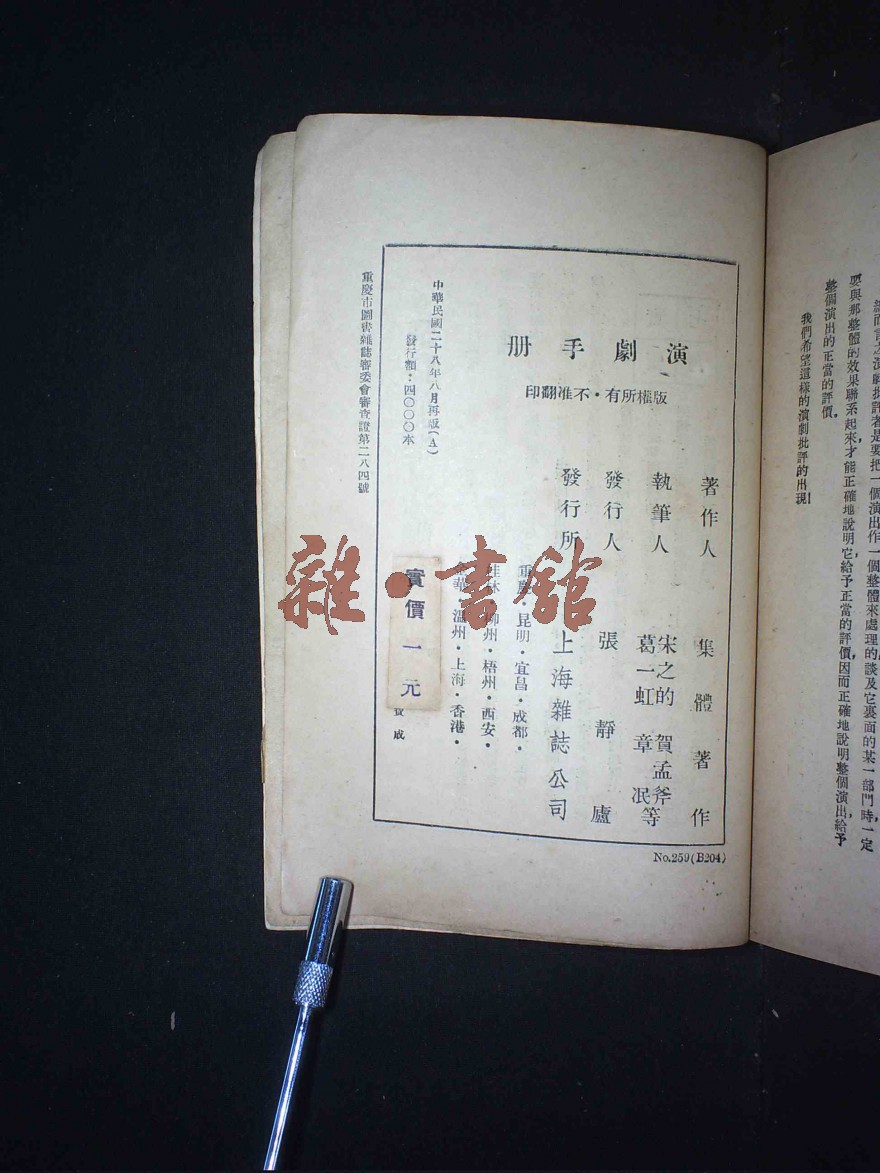 整個演出的正當的評價。
我們希望這樣的演劇批評的出現!
要與那整體的效果聯系起來才能正確地說明它給予正當的評價,因而正確地說明整個演出給予
批評者是要把一個演出作一個整體來處理的談及它裏面的某一部門時一定
演劇手册
版權所有・不准翻印
著作人 集體著作
執筆人 宋之的 賀孟斧
葛一虹 章泯等
發行人 張靜廬
發行所 上海雜誌公司
重慶・昆明・宜昌・成都・
桂林・柳州・梧州・西安・
金華・溫州・上海・香港・
實價一元
中華民國二十八年八月再版(A)
發行額:四〇〇〇本
重慶市圖書雜誌審委會審查證第二八四號
No.259(B204)
雜・書館